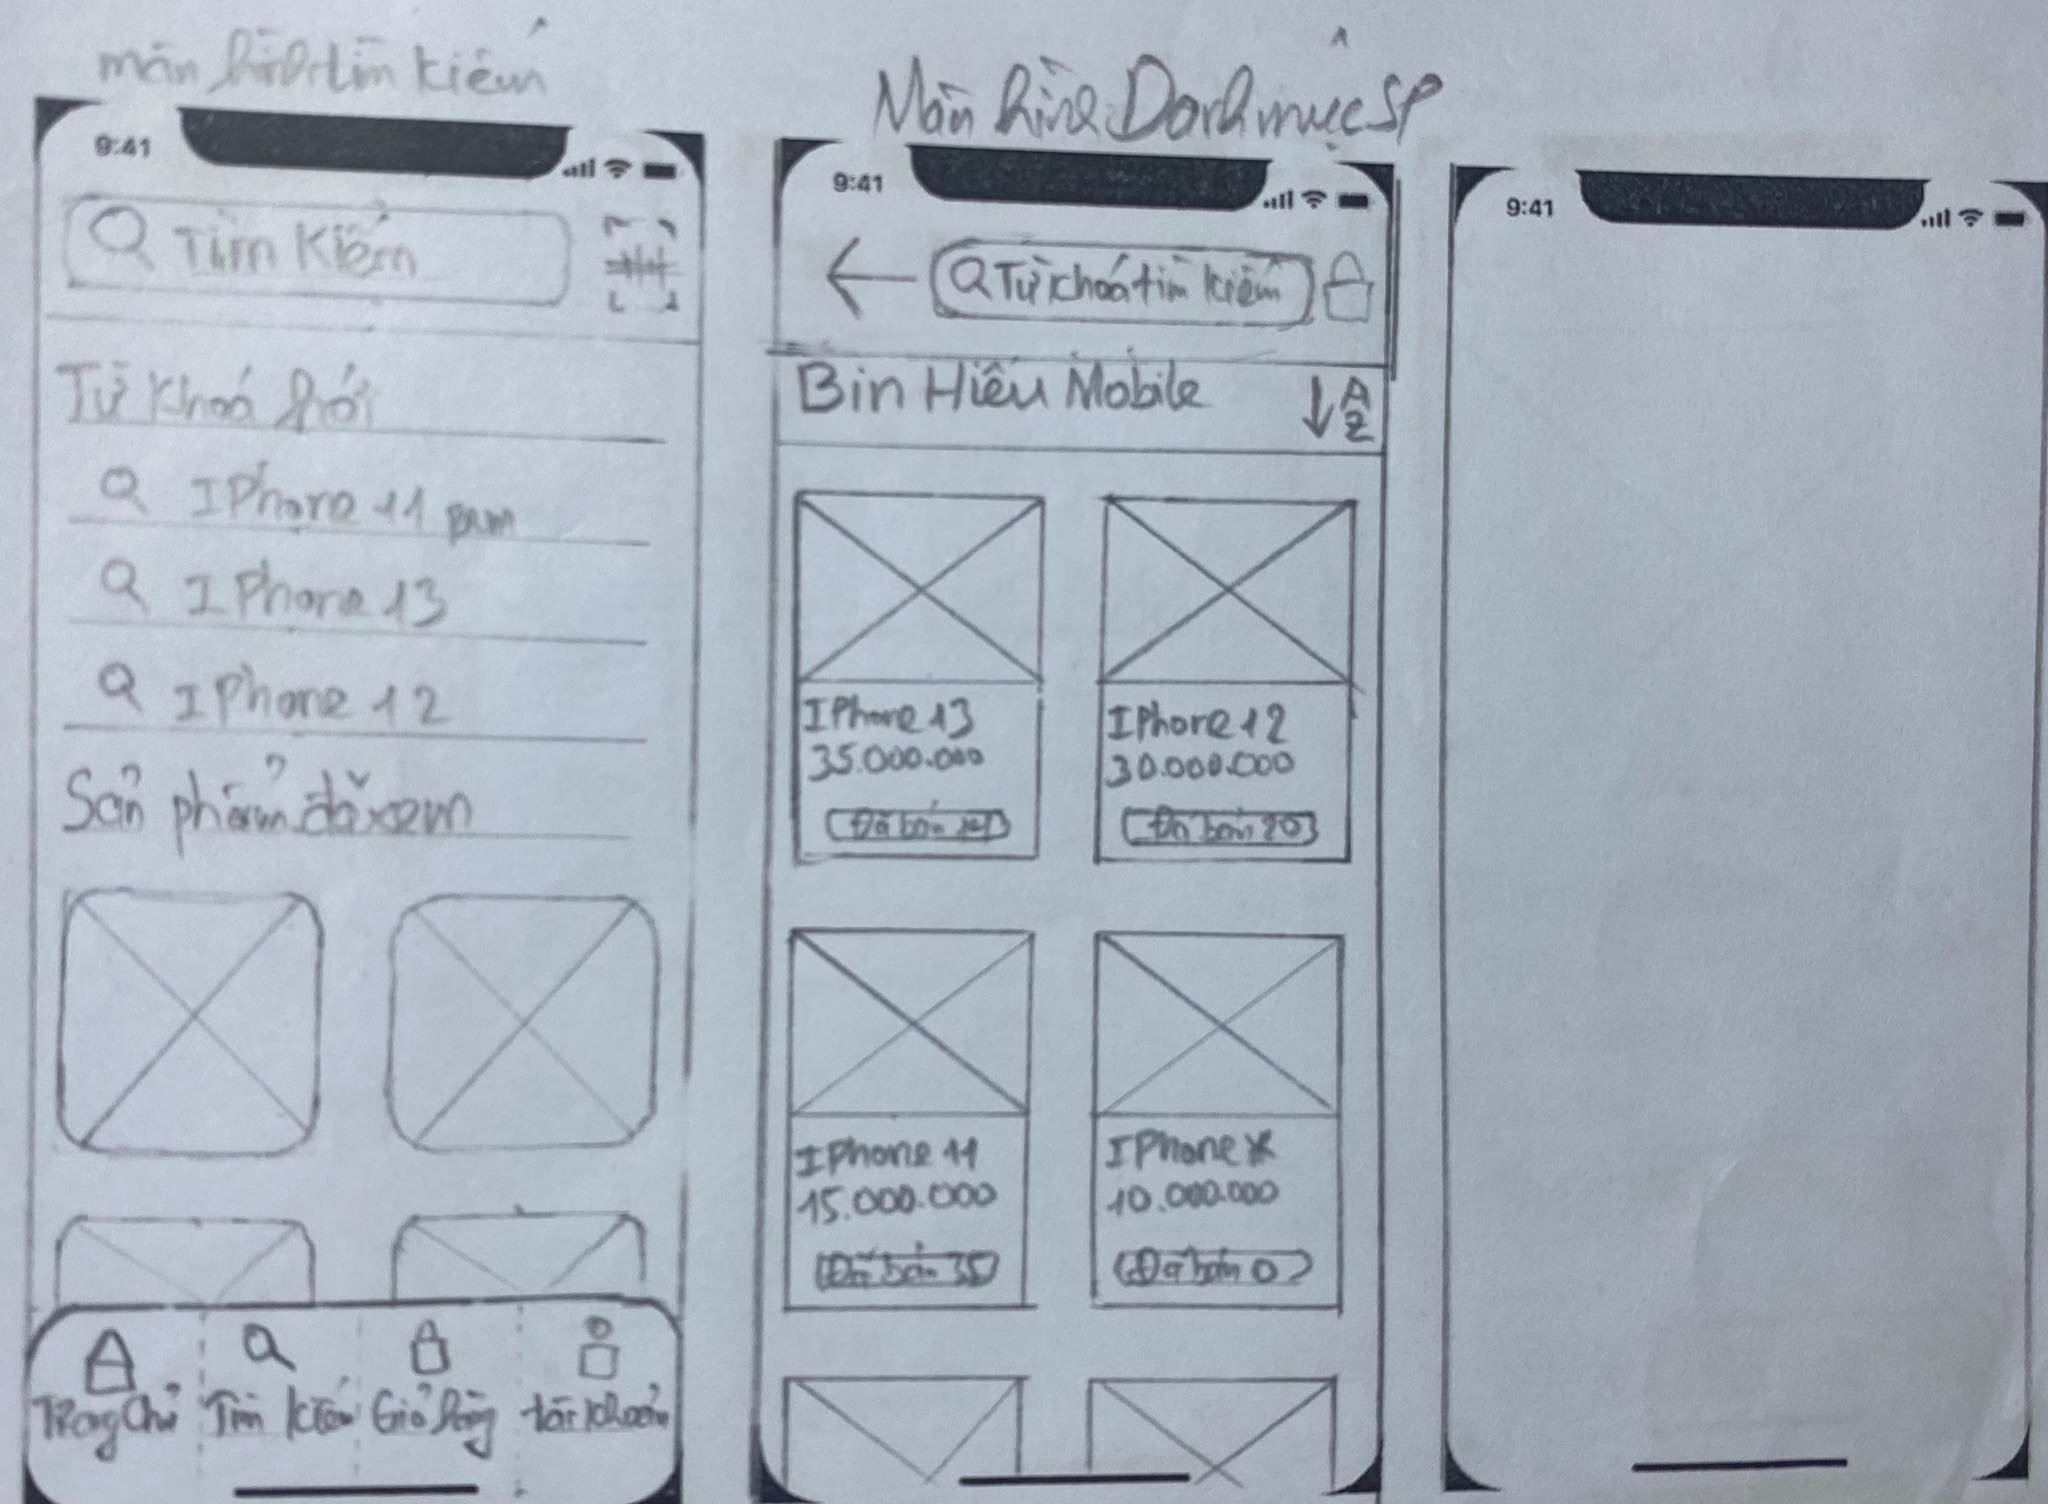 màn hình tìm kiếm
9:41
Tìm Kiếm
Từ Khoá hót
IPhone 11 prm
IPhone 13
IPhone 12
Sản phẩm đã xem
Trang Chủ Tìm Kiếm Giỏ hàng tài khoản
Màn hình Danh mục SP
9:41
Từ khoá tìm kiếm
Bin Hiếu Mobile A
Z
IPhone 13
35.000.000
Đã bán
IPhone 12
30.000.000
Đã bán 20
IPhone 11
15.000.000
Đã bán 35
IPhone X
10.000.000
Đã bán 0
9:41